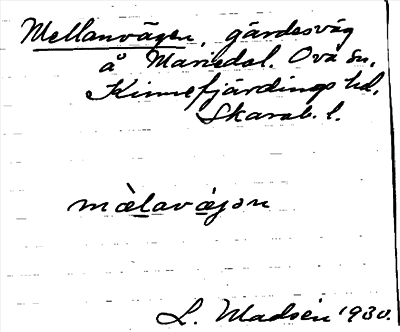 Mellanvägen, gärdesväg
å Mariedal. Ova sn,
Kinnefjärdings hd,
Skarab. l.
mæ̀lavæ̀gən
L. Madsén 1930.